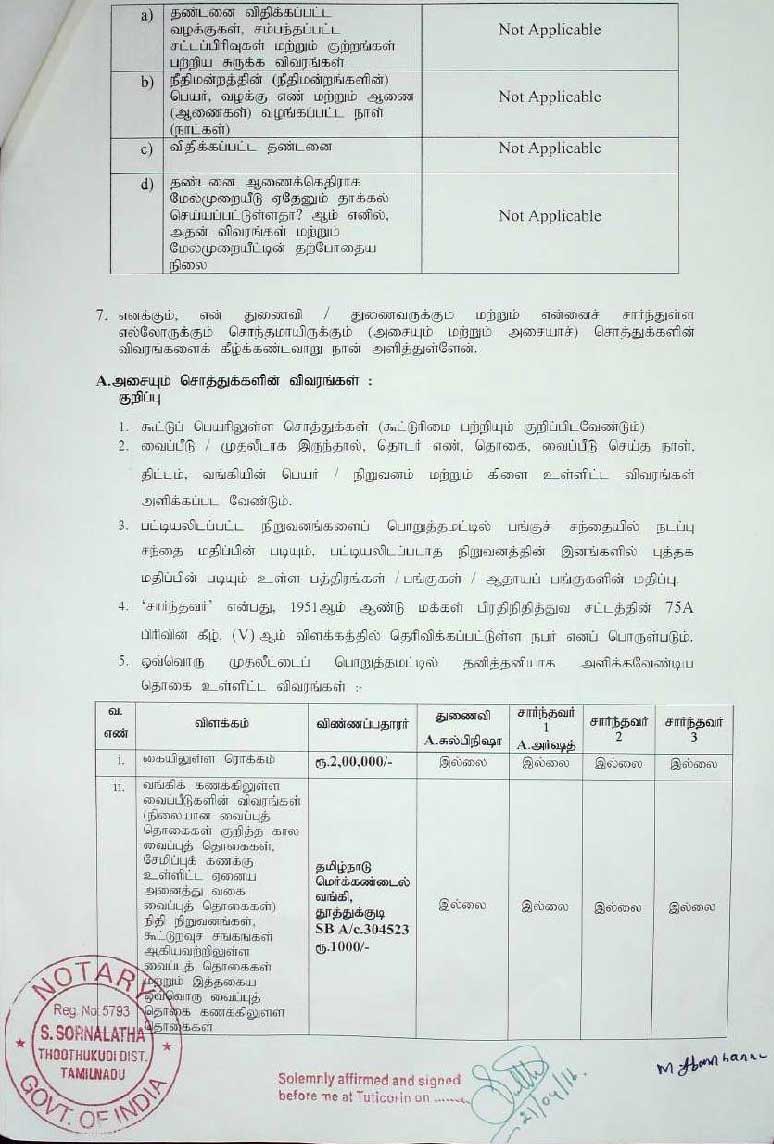 a) தண்டனை விதிக்கப்பட்ட
வழக்குகள், சம்பந்தப்பட்ட
சட்டப்பிரிவுகள் மற்றும் குற்றங்கள்
பற்றிய சுருக்க விவரங்கள்
Not Applicable
b) நீதிமன்றத்தின் (நீதிமன்றங்களின்)
பெயர், வழக்கு எண் மற்றும் ஆணை
(ஆணைகள்) வழங்கப்பட்ட நாள்
(நாட்கள்)
Not Applicable
c) விதிக்கப்பட்ட தண்டனை
Not Applicable
d) தண்டனை ஆணைக்கெதிராக
மேலமுறையீடு ஏதேனும் தாக்கல்
செய்யப்பட்டுள்ளதா? ஆம் எனில்,
அதன் விவரங்கள் மற்றும்
மேலமுறையீட்டின் தற்போதைய
நிலை
Not Applicable
7. எனக்கும், என் துணைவி / துணைவருக்கும் மற்றும் என்னைச் சார்ந்துள்ள
எல்லோருக்கும் சொந்தமாயிருக்கும் (அசையும் மற்றும் அசையாச்) சொத்துக்களின்
விவரங்களைக் கீழ்க்கண்டவாறு நான் அளித்துள்ளேன்.
A.அசையும் சொத்துக்களின் விவரங்கள் :
குறிப்பு
1. கூட்டுப் பெயரிலுள்ள சொத்துக்கள் (கூட்டுரிமை பற்றியும் குறிப்பிடவேண்டும்)
2. வைப்பீடு / முதலீடாக இருந்தால், தொடர் எண், தொகை, வைப்பீடு செய்த நாள்,
திட்டம், வங்கியின் பெயர் / நிறுவனம் மற்றும் கிளை உள்ளிட்ட விவரங்கள்
அளிக்கப்பட வேண்டும்.
3. பட்டியலிடப்பட்ட நிறுவனங்களைப் பொறுத்தமட்டில் பங்குச் சந்தையில் நடப்பு
சந்தை மதிப்பின் படியும், பட்டியலிடப்படாத நிறுவனத்தின் இனங்களில் புத்தக
மதிப்பின் படியும் உள்ள பத்திரங்கள் / பங்குகள் / ஆதாயப் பங்குகளின் மதிப்பு.
4. ‘சார்ந்தவர்’ என்பது, 1951ஆம் ஆண்டு மக்கள் பிரதிநிதித்துவ சட்டத்தின் 75A
பிரிவின் கீழ், (V) ஆம் விளக்கத்தில் தெரிவிக்கப்பட்டுள்ள நபர் எனப் பொருள்படும்.
5. ஒவ்வொரு முதலீட்டைப் பொறுத்தமட்டில் தனித்தனியாக அளிக்கவேண்டிய
தொகை உள்ளிட்ட விவரங்கள் :-
வ. எண் விளக்கம் விண்ணப்பதாரர் துணைவி A.சுல்பிநிஷா சார்ந்தவர் 1 A.அர்ஷத் சார்ந்தவர் 2 சார்ந்தவர் 3
i. கையிலுள்ள ரொக்கம் ரூ.2,00,000/- இல்லை இல்லை இல்லை இல்லை
ii. வங்கிக் கணக்கிலுள்ள
வைப்பீடுகளின் விவரங்கள்
(நிலையான வைப்புத்
தொகைகள் குறித்த கால
வைப்புத் தொகைகள்,
சேமிப்புக் கணக்கு
உள்ளிட்ட ஏனைய
அனைத்து வகை
வைப்புத் தொகைகள்)
நிதி நிறுவனங்கள்,
கூட்டுறவுச் சங்கங்கள்
ஆகியவற்றிலுள்ள
வைப்புத் தொகைகள்
மற்றும் இத்தகைய
ஒவ்வொரு வைப்புத்
தொகை கணக்கிலுள்ள
தொகைகள்
தமிழ்நாடு
மெர்க்கண்டைல்
வங்கி,
தூத்துக்குடி
SB A/c.304523
ரூ.1000/-
இல்லை இல்லை இல்லை இல்லை
NOTARY
Reg. No: 5793
S. SORNALATHA
THOOTHUKUDI DIST.
TAMILNADU
GOVT. OF INDIA
Solemnly affirmed and signed
before me at Tuticorin on ........
21/04/16.